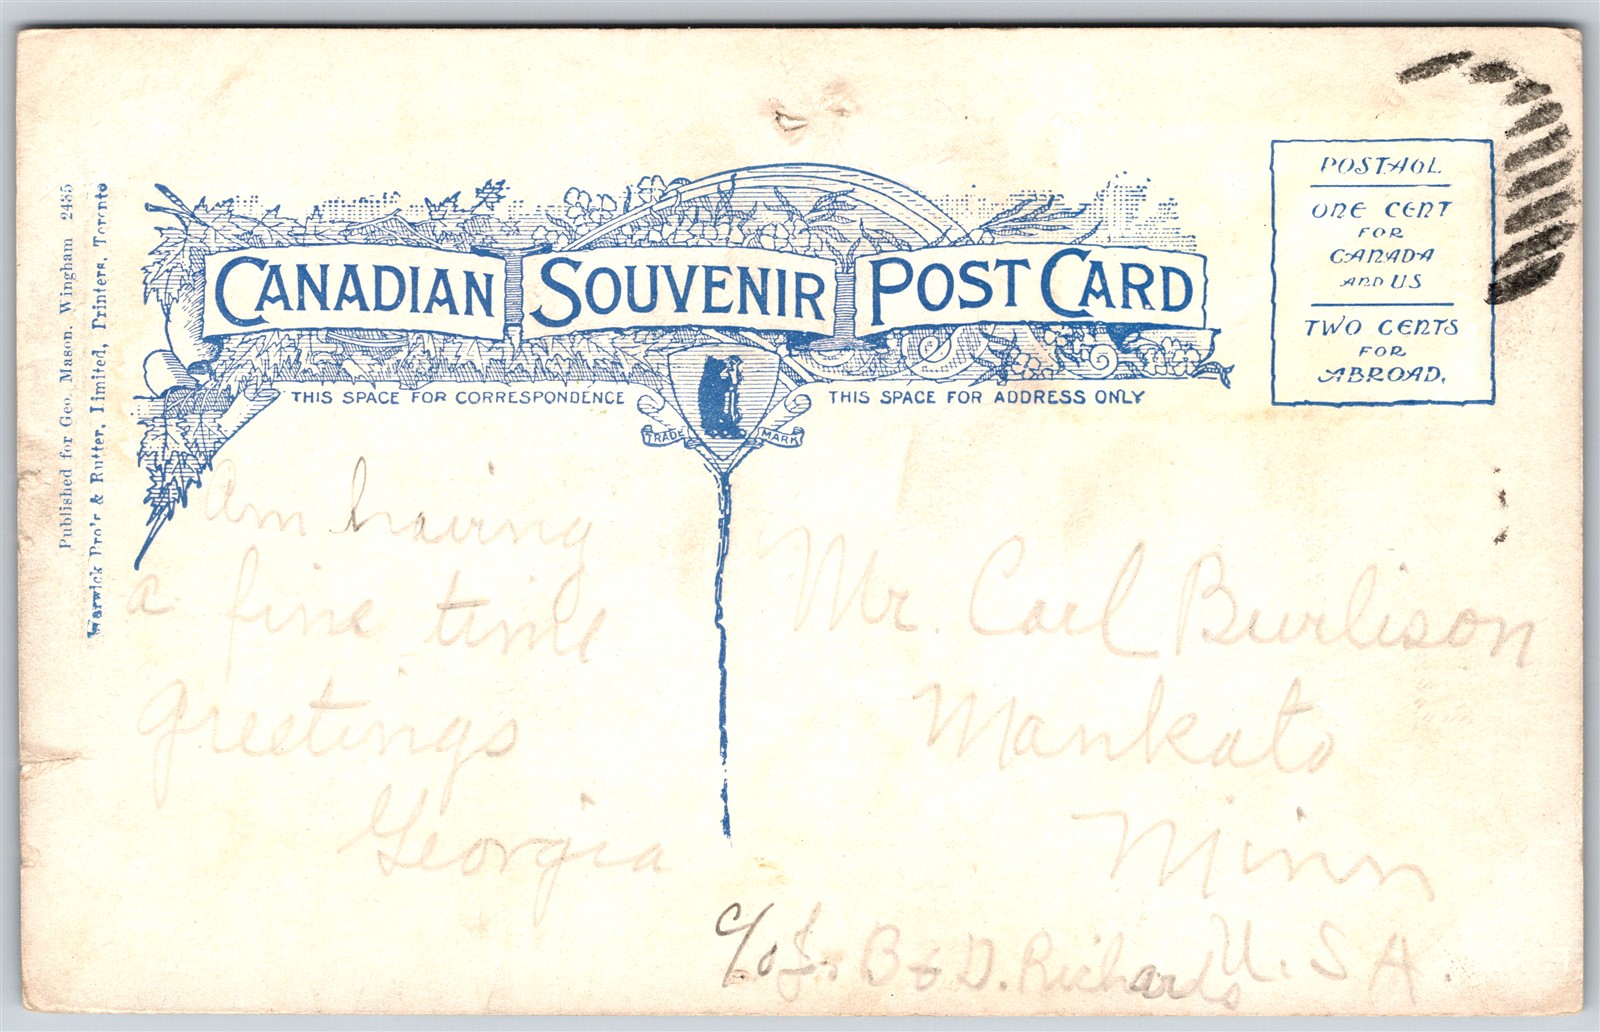 Published for Geo. Mason. Wingham 2435
Warwick Bro's & Rutter, Limited, Printers, Toronto
CANADIAN SOUVENIR POST CARD
THIS SPACE FOR CORRESPONDENCE
THIS SPACE FOR ADDRESS ONLY
TRADE MARK
POSTAGE
ONE CENT
FOR
CANADA
AND US
TWO CENTS
FOR
ABROAD.
Am having
a fine time
greetings
Georgia
Mr. Carl Burlison
Mankato
Minn
U. S A.
c/o B & D. Richards